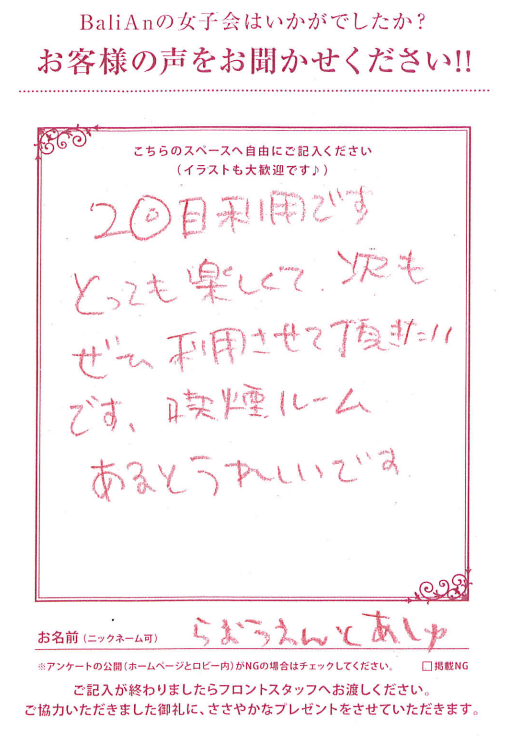 BaliAnの女子会はいかがでしたか?
お客様の声をお聞かせください!!
こちらのスペースへ自由にご記入ください
(イラストも大歓迎です♪)
2回目利用です
とっても楽しくて、次も
ぜひ利用させて頂きたい
です、喫煙ルーム
あるとうれしいです
お名前(ニックネーム可) らむうえんとあしゅ
※アンケートの公開(ホームページとロビー内)がNGの場合はチェックしてください。 □掲載NG
ご記入が終わりましたらフロントスタッフへお渡しください。
ご協力いただきました御礼に、ささやかなプレゼントをさせていただきます。